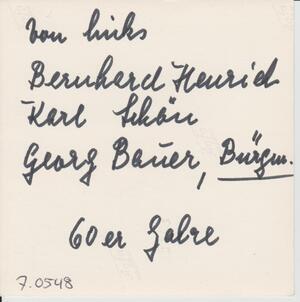 von links
Bernhard Henrich
Karl Schön
Georg Bauer, Bürgm.
60er Jahre
7.0548